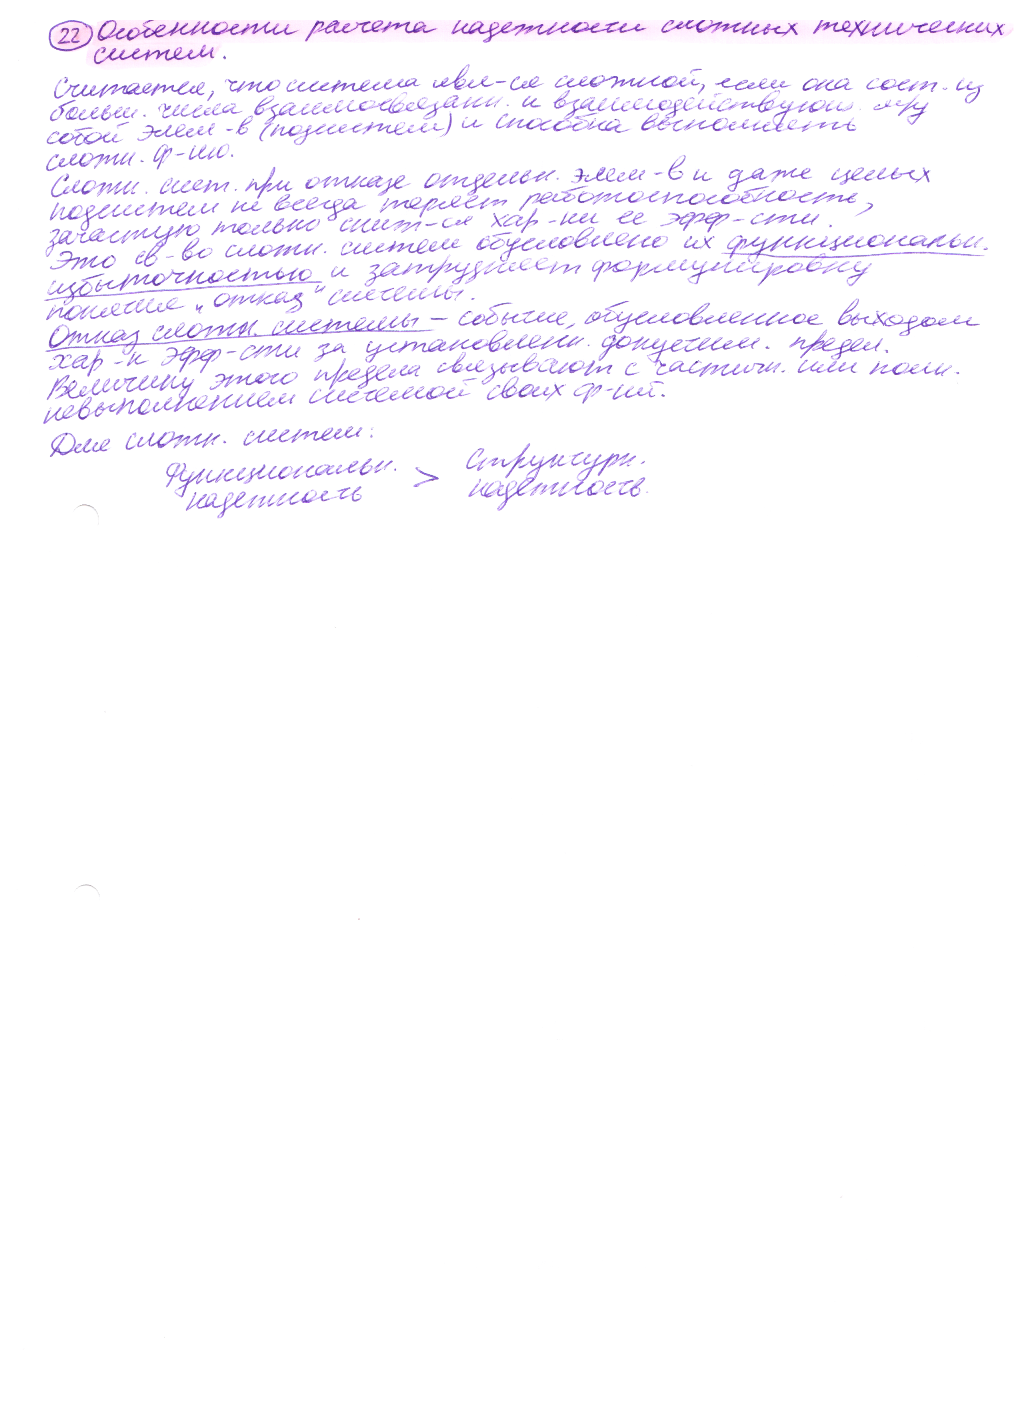 22 Особенности расчета надежности сложных технических
систем.
Считается, что система явл-ся сложной, если она сост. из
больш. числа взаимосвязанн. и взаимодействующ. м/у
собой элем-в (подсистем) и способна выполнять
сложн. ф-цию.
Сложн. сист. при отказе отдельн. элем-в и даже целых
подсистем не всегда теряет работоспособность,
зачастую только сниж-ся хар-ки ее эфф-сти.
Это св-во сложн. систем обусловлено их функциональн.
избыточностью и затрудняет формулировку
понятия „отказ" системы.
Отказ сложн. системы – событие, обусловленное выходом
хар-к эфф-сти за установленн. допустим. предел.
Величину этого предела связывают с частичн. или полн.
невыполнением системой своих ф-ций.
Для сложн. систем:
Функциональн. > Структурн.
надежность надежность.